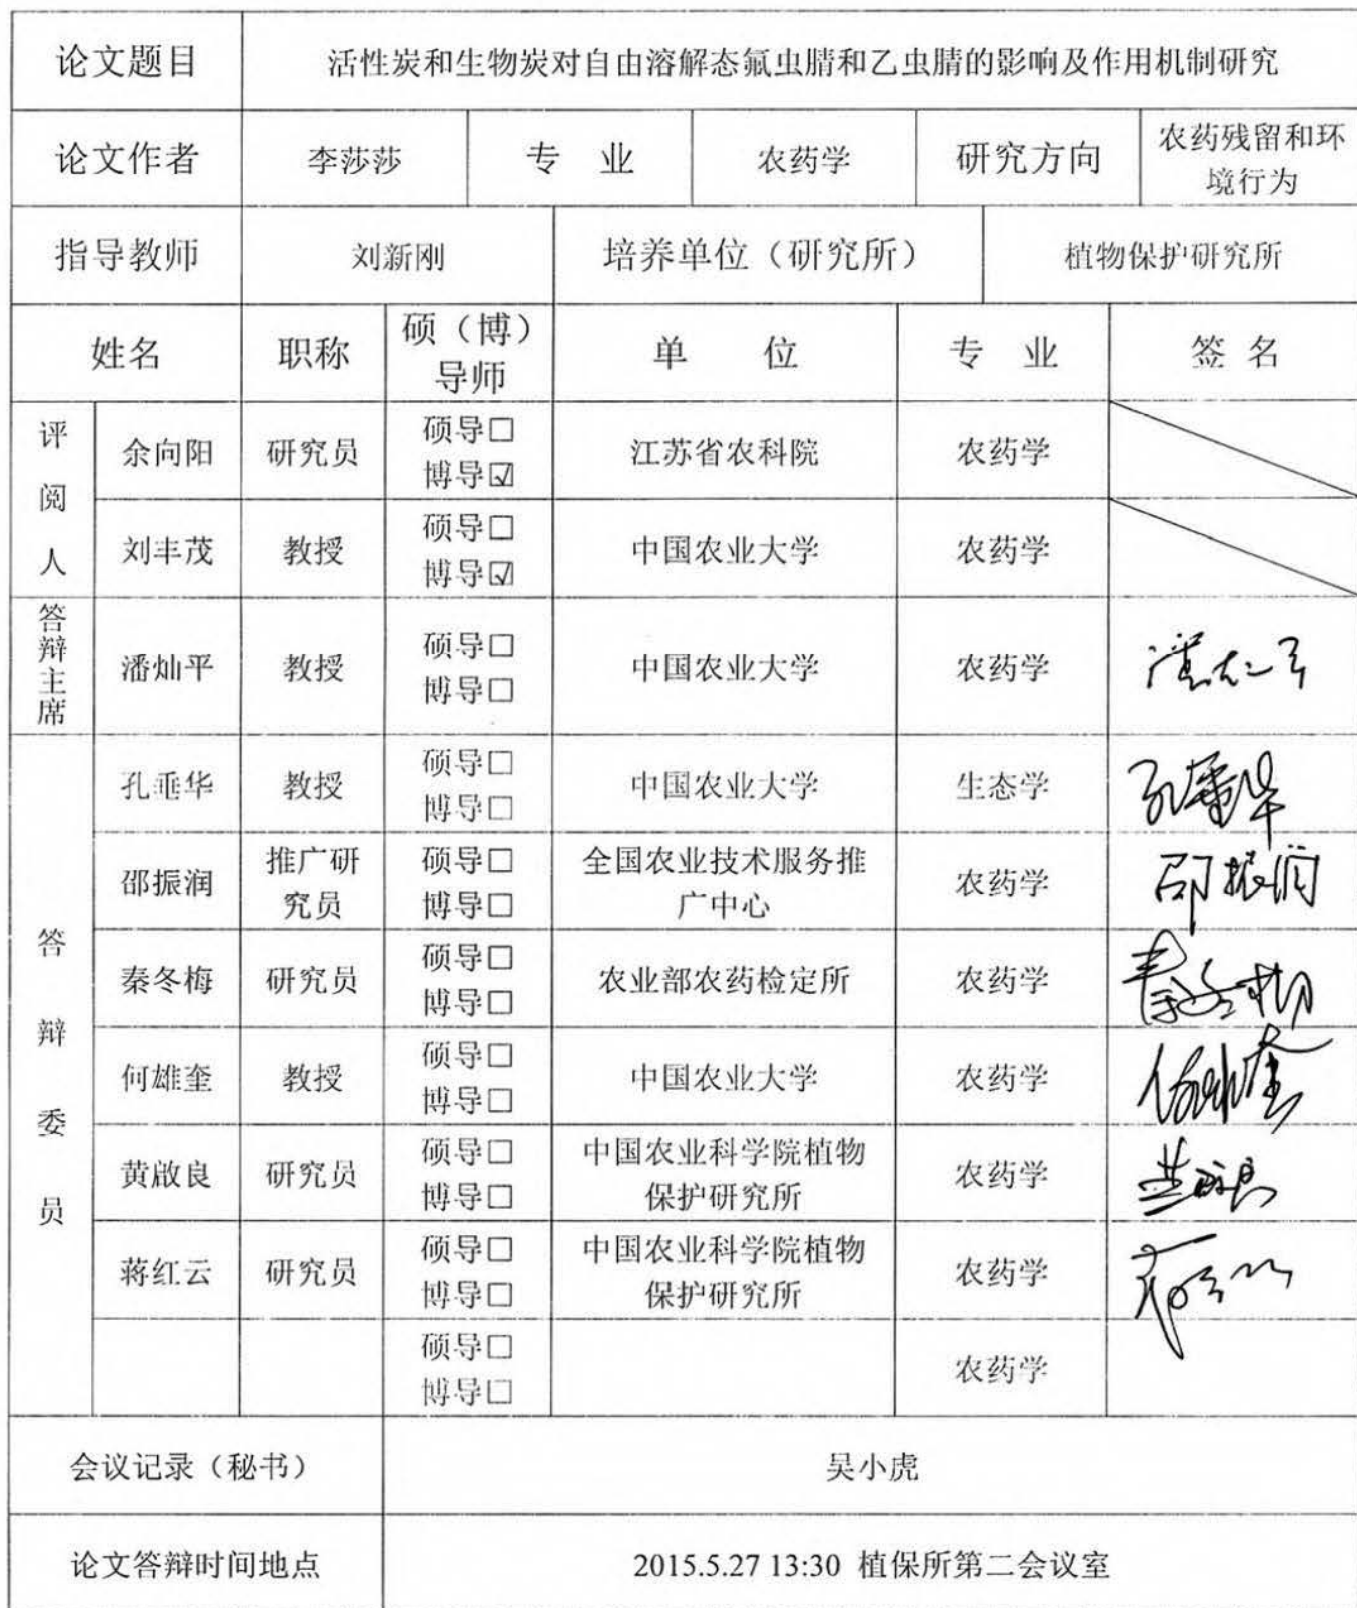 论文题目 活性炭和生物炭对自由溶解态氟虫腈和乙虫腈的影响及作用机制研究
论文作者 李莎莎 专 业 农药学 研究方向 农药残留和环
境行为
指导教师 刘新刚 培养单位（研究所） 植物保护研究所
姓名 职称 硕（博）
导师 单 位 专 业 签 名
评阅人
余向阳 研究员 硕导☐
博导☑ 江苏省农科院 农药学
刘丰茂 教授 硕导☐
博导☑ 中国农业大学 农药学
答辩主席
潘灿平 教授 硕导☐
博导☐ 中国农业大学 农药学
答辩委员
孔垂华 教授 硕导☐
博导☐ 中国农业大学 生态学 孔垂华
邵振润 推广研
究员 硕导☐
博导☐ 全国农业技术服务推
广中心 农药学 邵振润
秦冬梅 研究员 硕导☐
博导☐ 农业部农药检定所 农药学 秦冬梅
何雄奎 教授 硕导☐
博导☐ 中国农业大学 农药学 何雄奎
黄啟良 研究员 硕导☐
博导☐ 中国农业科学院植物
保护研究所 农药学 黄啟良
蒋红云 研究员 硕导☐
博导☐ 中国农业科学院植物
保护研究所 农药学
硕导☐
博导☐ 农药学
会议记录（秘书） 吴小虎
论文答辩时间地点 2015.5.27 13:30 植保所第二会议室